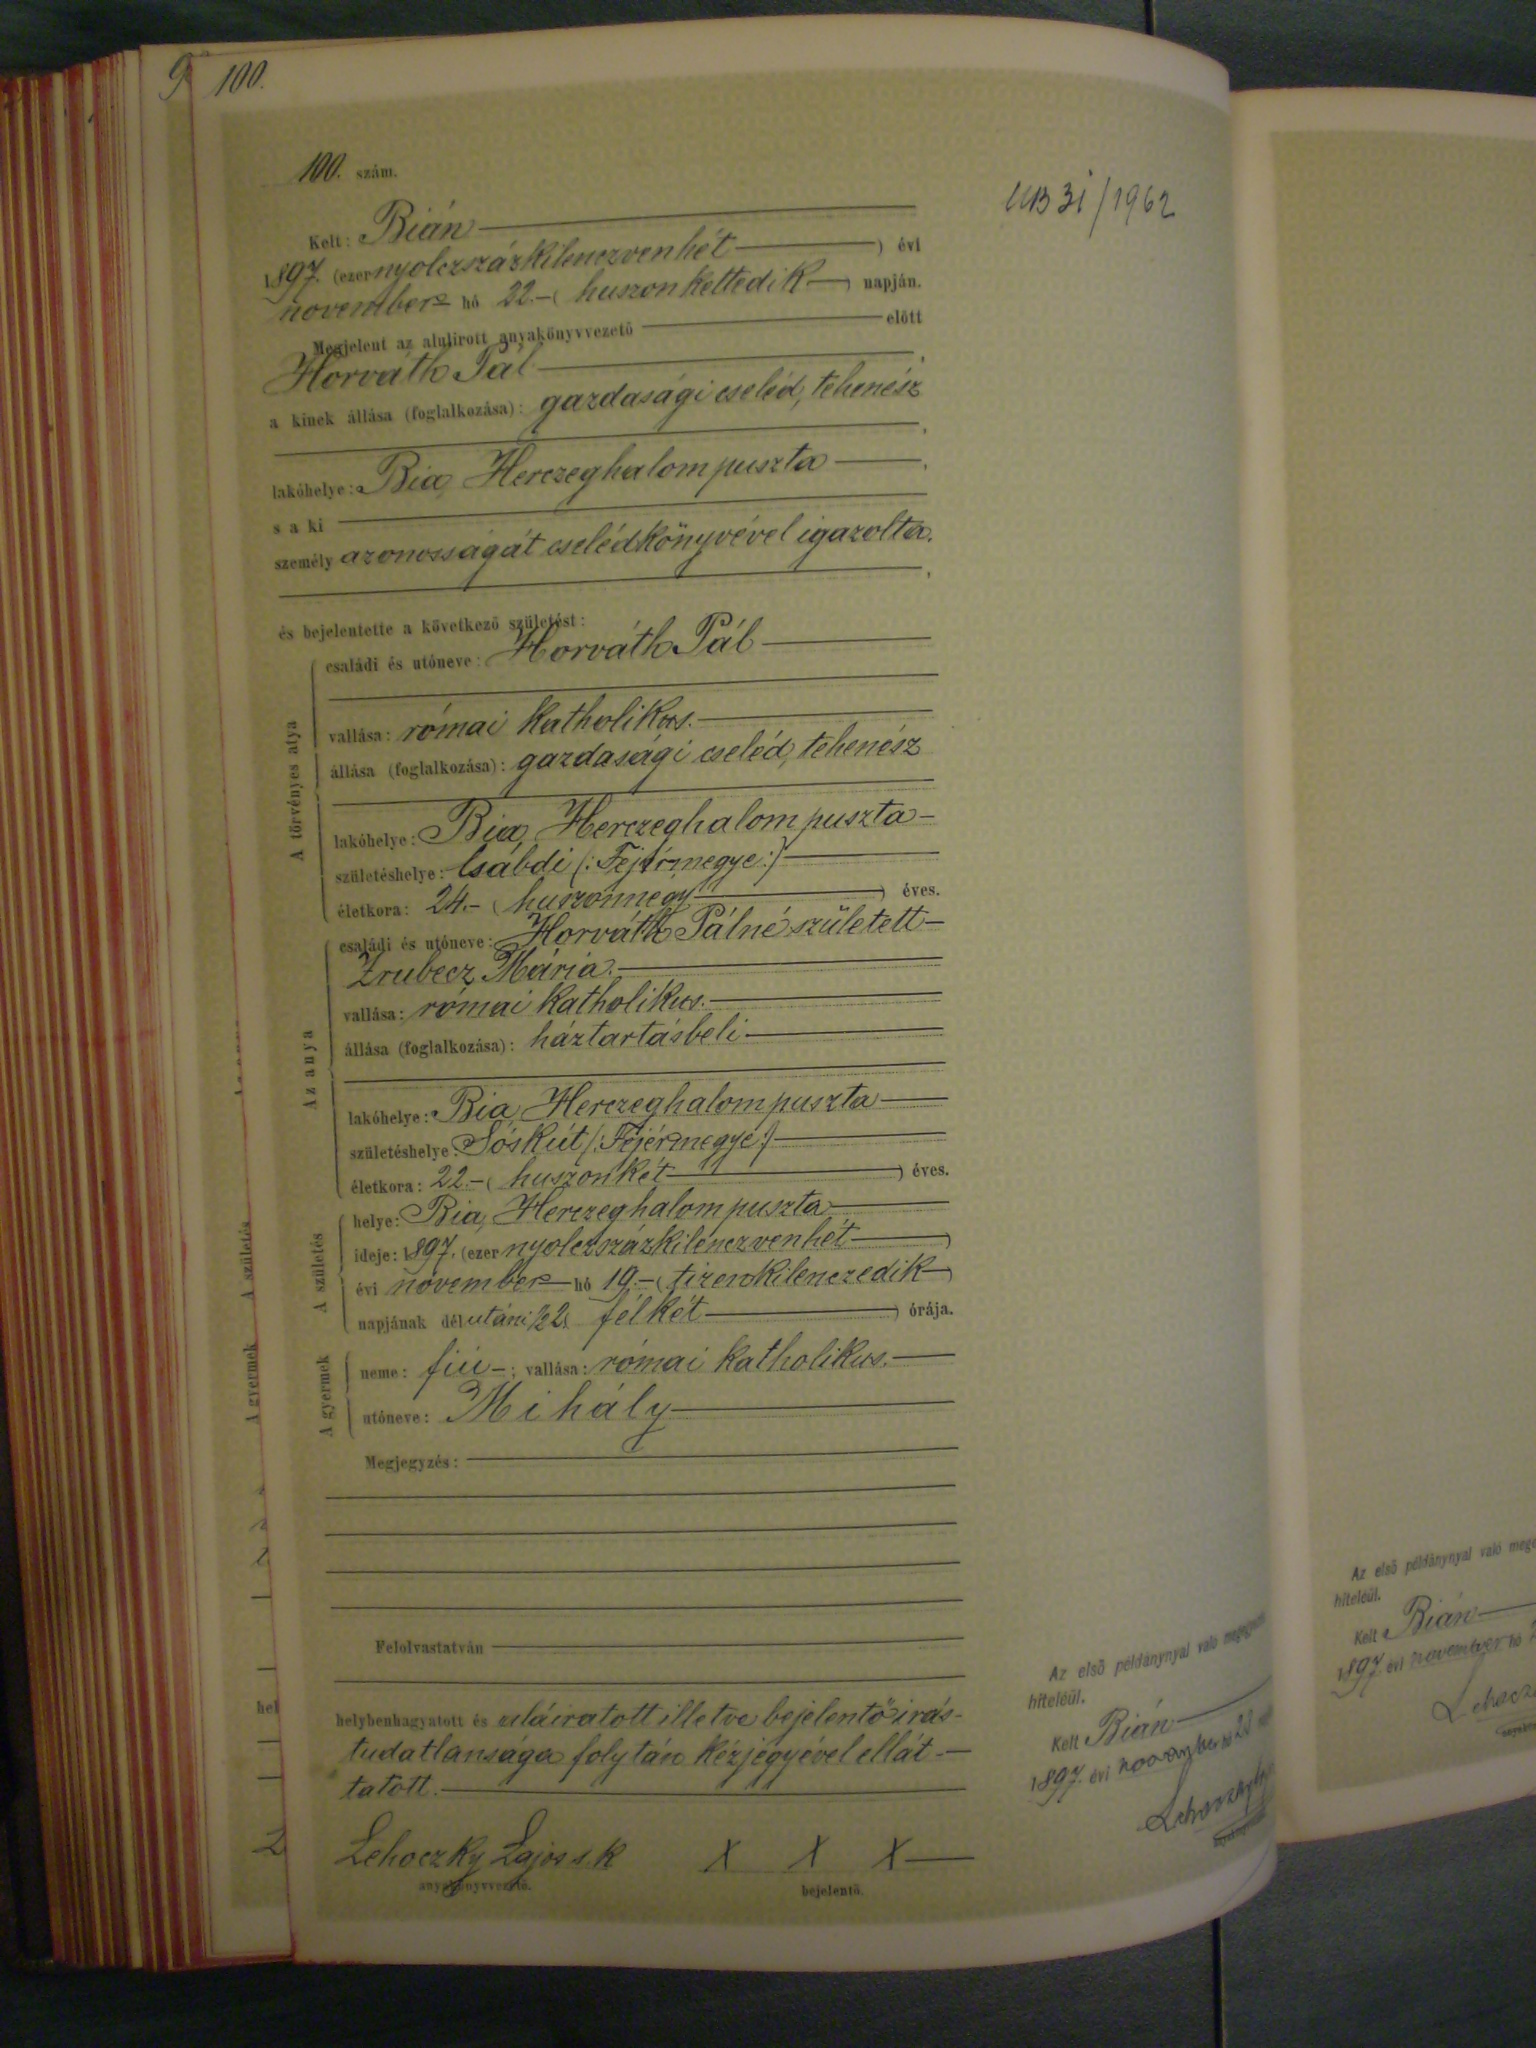 100.
100. szám.
Kelt: Bián
1897. (ezer nyolczszázkilenczvenhét) évi
november hó 22.- (huszonkettedik) napján.
Megjelent az alulirott anyakönyvvezető előtt
Horváth Pál
a kinek állása (foglalkozása): gazdasági cseléd, tehenész
lakóhelye: Bia, Herczeghalompuszta
s a ki
személyazonosságát cselédkönyvével igazolta.
és bejelentette a következő születést:
A törvényes atya
családi és utóneve: Horváth Pál
vallása: római katholikus.
állása (foglalkozása): gazdasági cseléd, tehenész
lakóhelye: Bia, Herczeghalompuszta
születéshelye: Csabdi (: Fejérmegye :)
életkora: 24.- (huszonnégy) éves.
Az anya
családi és utóneve: Horváth Pálné született
Zrubecz Mária.
vallása: római katholikus.
állása (foglalkozása): háztartásbeli
lakóhelye: Bia, Herczeghalompuszta
születéshelye: Sóskút (: Fejérmegye :)
életkora: 22.- (huszonkét) éves.
A születés
helye: Bia, Herczeghalompuszta
ideje: 1897. (ezer nyolczszázkilenczvenhét)
évi november hó 19.- (tizenkilenczedik)
napjának délutáni ½2 (félkét) órája.
A gyermek
neme: fiú; vallása: római katholikus.
utóneve: Mihály
Megjegyzés:
Felolvastatván
helybenhagyatott és aláiratott illetve bejelentő irás-
tudatlansága folytán kézjegyével ellát-
tatott.
Lehoczky Lajos s.k X X X
anyakönyvvezető. bejelentő.
31/1962
Az első példánynyal való
hiteléül.
Kelt Bián
1897. évi november hó 22
Az első példánynyal való
hiteléül.
Kelt Bián
1897. évi november hó
A születés
A gyermek
hel